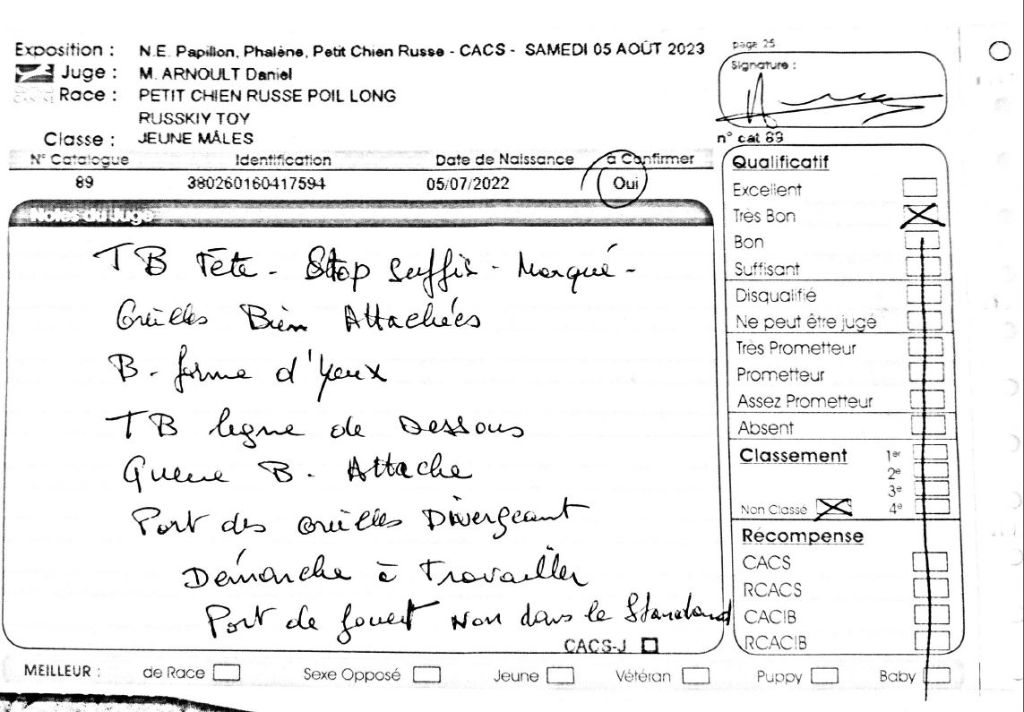 Exposition : N.E. Papillon, Phalène, Petit Chien Russe - CACS - SAMEDI 05 AOÛT 2023
Juge : M. ARNOULT Daniel
Race : PETIT CHIEN RUSSE POIL LONG
RUSSKIY TOY
Classe : JEUNE MÂLES
page 25
Signature :
n° cat 89
N° Catalogue Identification Date de Naissance à Confirmer
89 380260160417594 05/07/2022 Oui
Notes du Juge
TB Tête - Stop suffis - Marqué -
Oreilles Bien Attachées
B - forme d'Yeux
TB ligne de Dessous
Queue B. Attache
Port des oreilles Divergeant
Démarche à Travailler
Port de fouet Non dans le Standard
CACS-J
Qualificatif
Excellent
Très Bon
Bon
Suffisant
Disqualifié
Ne peut être jugé
Très Prometteur
Prometteur
Assez Prometteur
Absent
Classement 1er
2e
3e
Non Classé 4e
Récompense
CACS
RCACS
CACIB
RCACIB
MEILLEUR : de Race Sexe Opposé Jeune Vétéran Puppy Baby